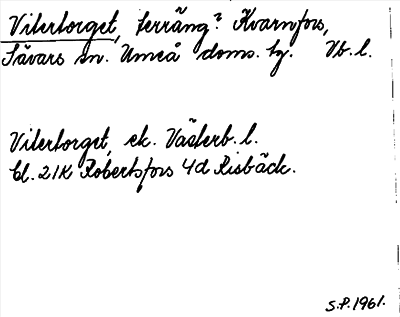 Vitertorget, terräng? Kvarnfors,
Sävars sn. Umeå doms. hg. Vb. l.
Vitertorget, ek. Västerb. l.
bl. 21K Robertsfors 4d Risbäck.
S.P. 1961.